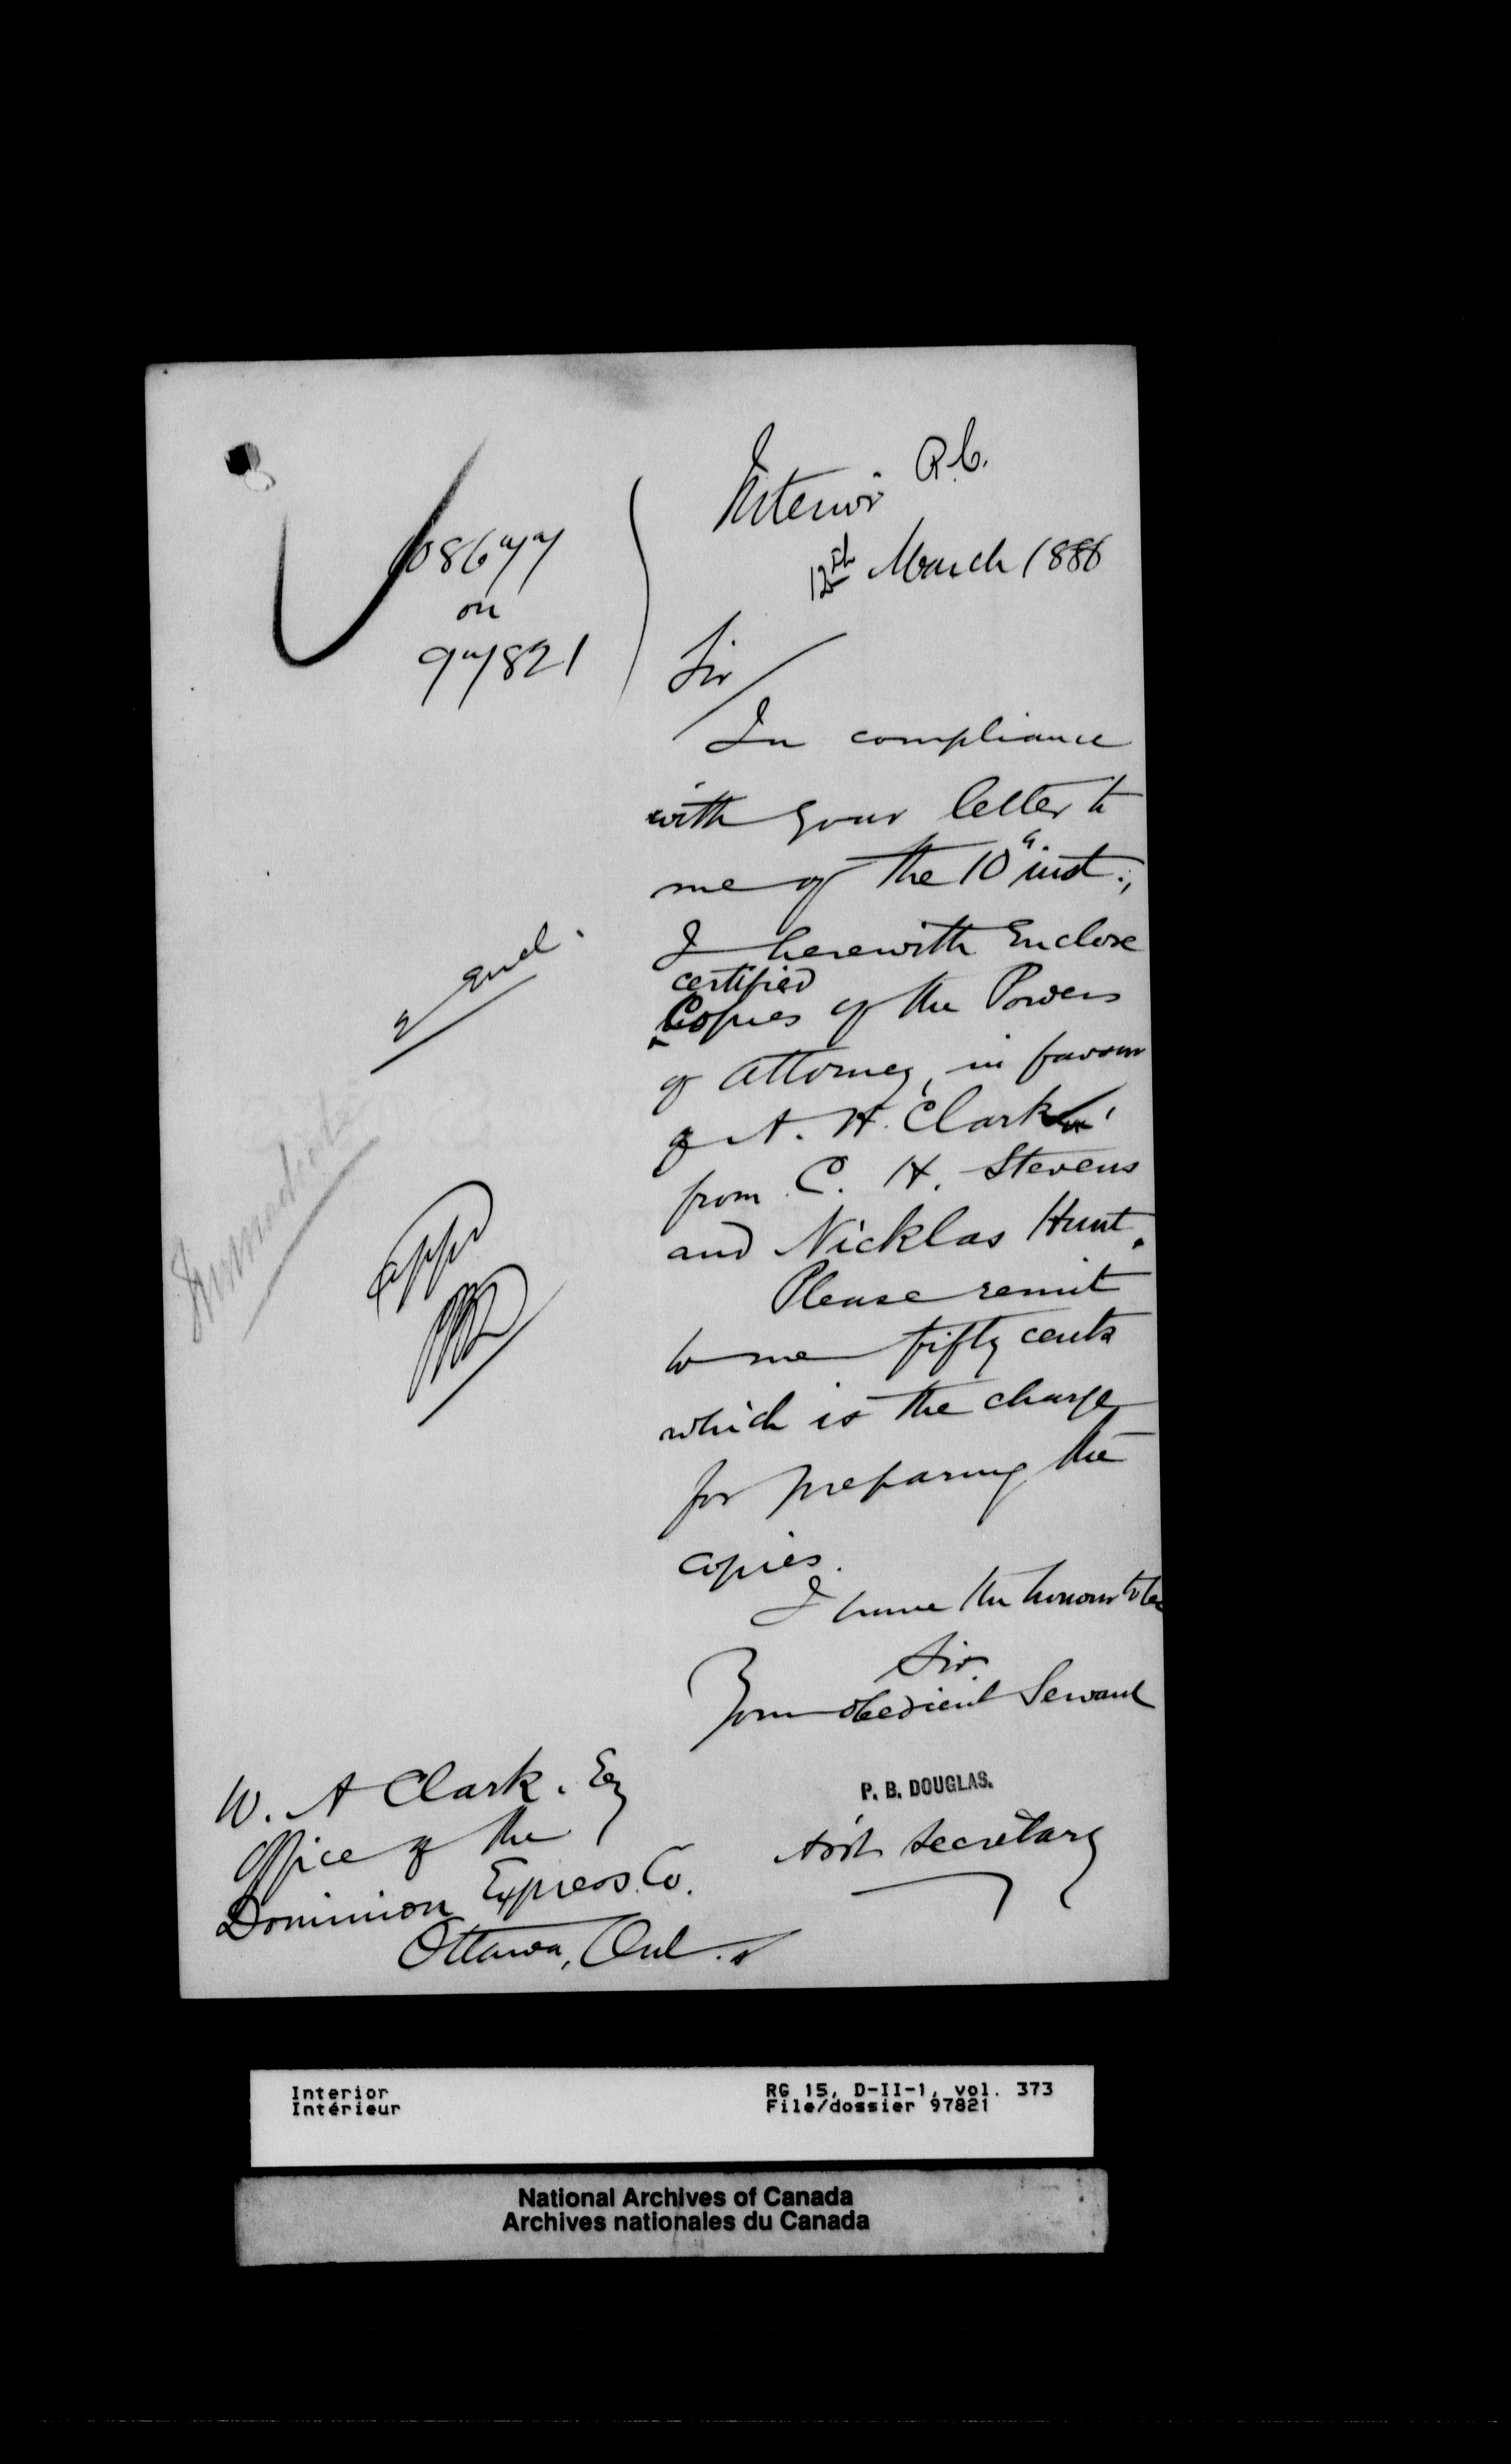 Interior R.C.
12th March 1886
108677
on
97821
Sir
In compliance
with your letter to
me of the 10" inst.,
I herewith Enclose
certified
Copies of the Powers
of Attorney, in favour
of A. H. Clark
from C. H. Stevens
and Nicklas Hunt.
Please remit
to me fifty cents
which is the charge
for preparing the
copies.
I have the honour to be
Sir
Your obedient Servant
P. B. DOUGLAS.
Asst. Secretary
2 encl.
Immediate
W. A Clark. Esq
Office of the
Dominion Express Co.
Ottawa, Ont.
Interior
Intérieur
RG 15, D-II-1, vol. 373
File/dossier 97821
National Archives of Canada
Archives nationales du Canada